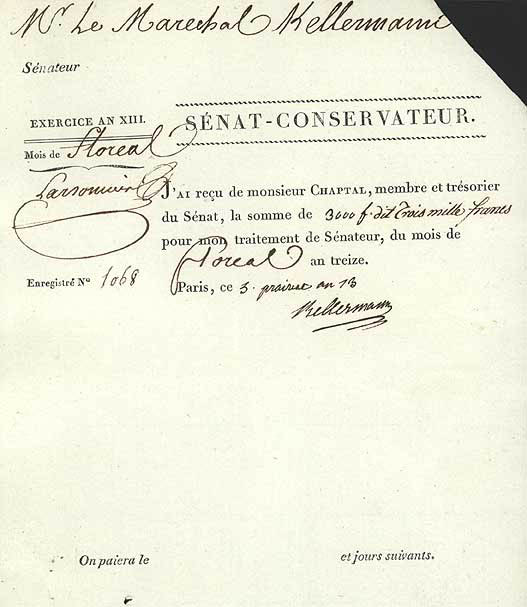 Mr. Le Marechal Kellermann
Sénateur
EXERCICE AN XIII.
SÉNAT-CONSERVATEUR.
Mois de Floreal
J'AI reçu de monsieur CHAPTAL, membre et trésorier
du Sénat, la somme de 3000 f. dit Trois mille francs
pour mon traitement de Sénateur, du mois de
Floreal an treize.
Enregistré No 1068
Paris, ce 3. prairial an 13
Kellermann
On paiera le et jours suivants.